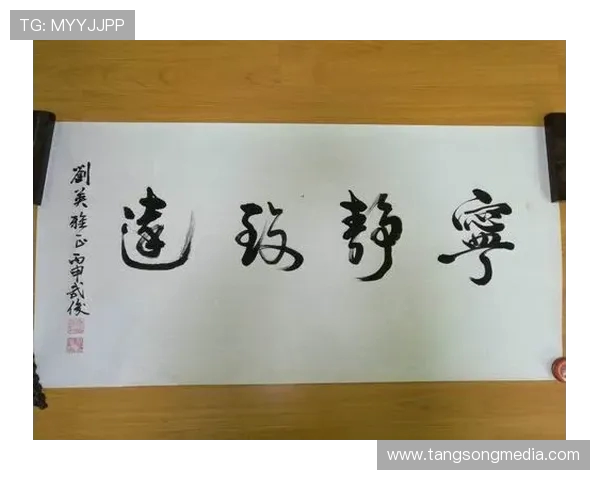 TG: MYYJJPP
寧靜致遠
劉英雅正丙申武俊
www.tangsongmedia.com